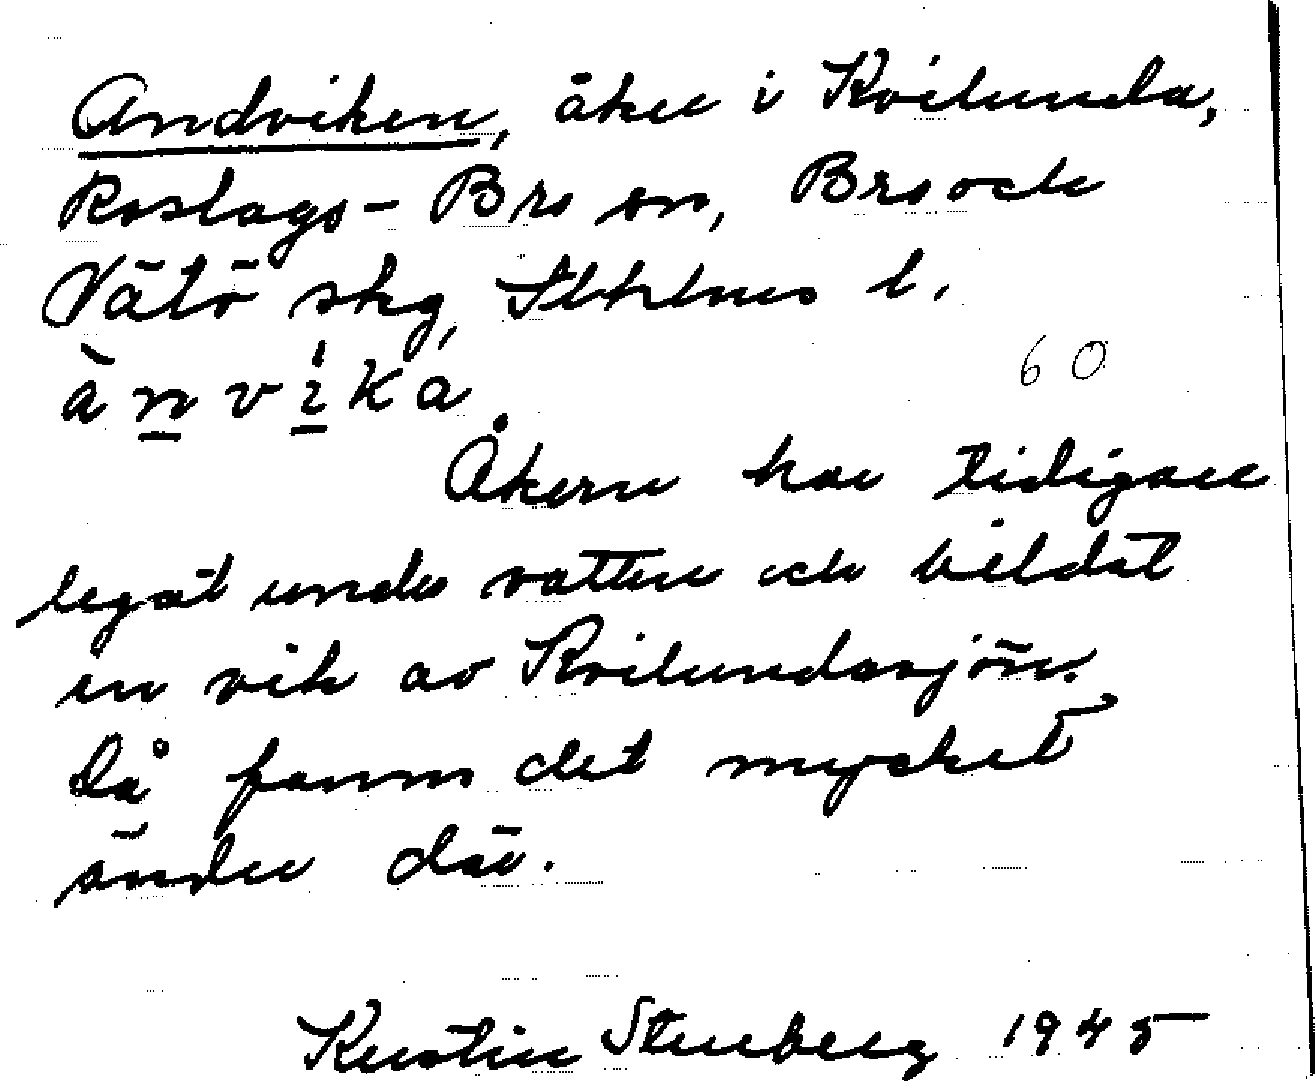 Andviken, åker i Kvilunda,
Roslags-Bro sn, Bro och
Vätö skg, Sthlms l.
ànvíka
60
Åkern har tidigare
legat under vatten och bildat
en vik av Kvilundasjön.
Då fanns det mycket
änder där.
Kerstin Stenberg 1945